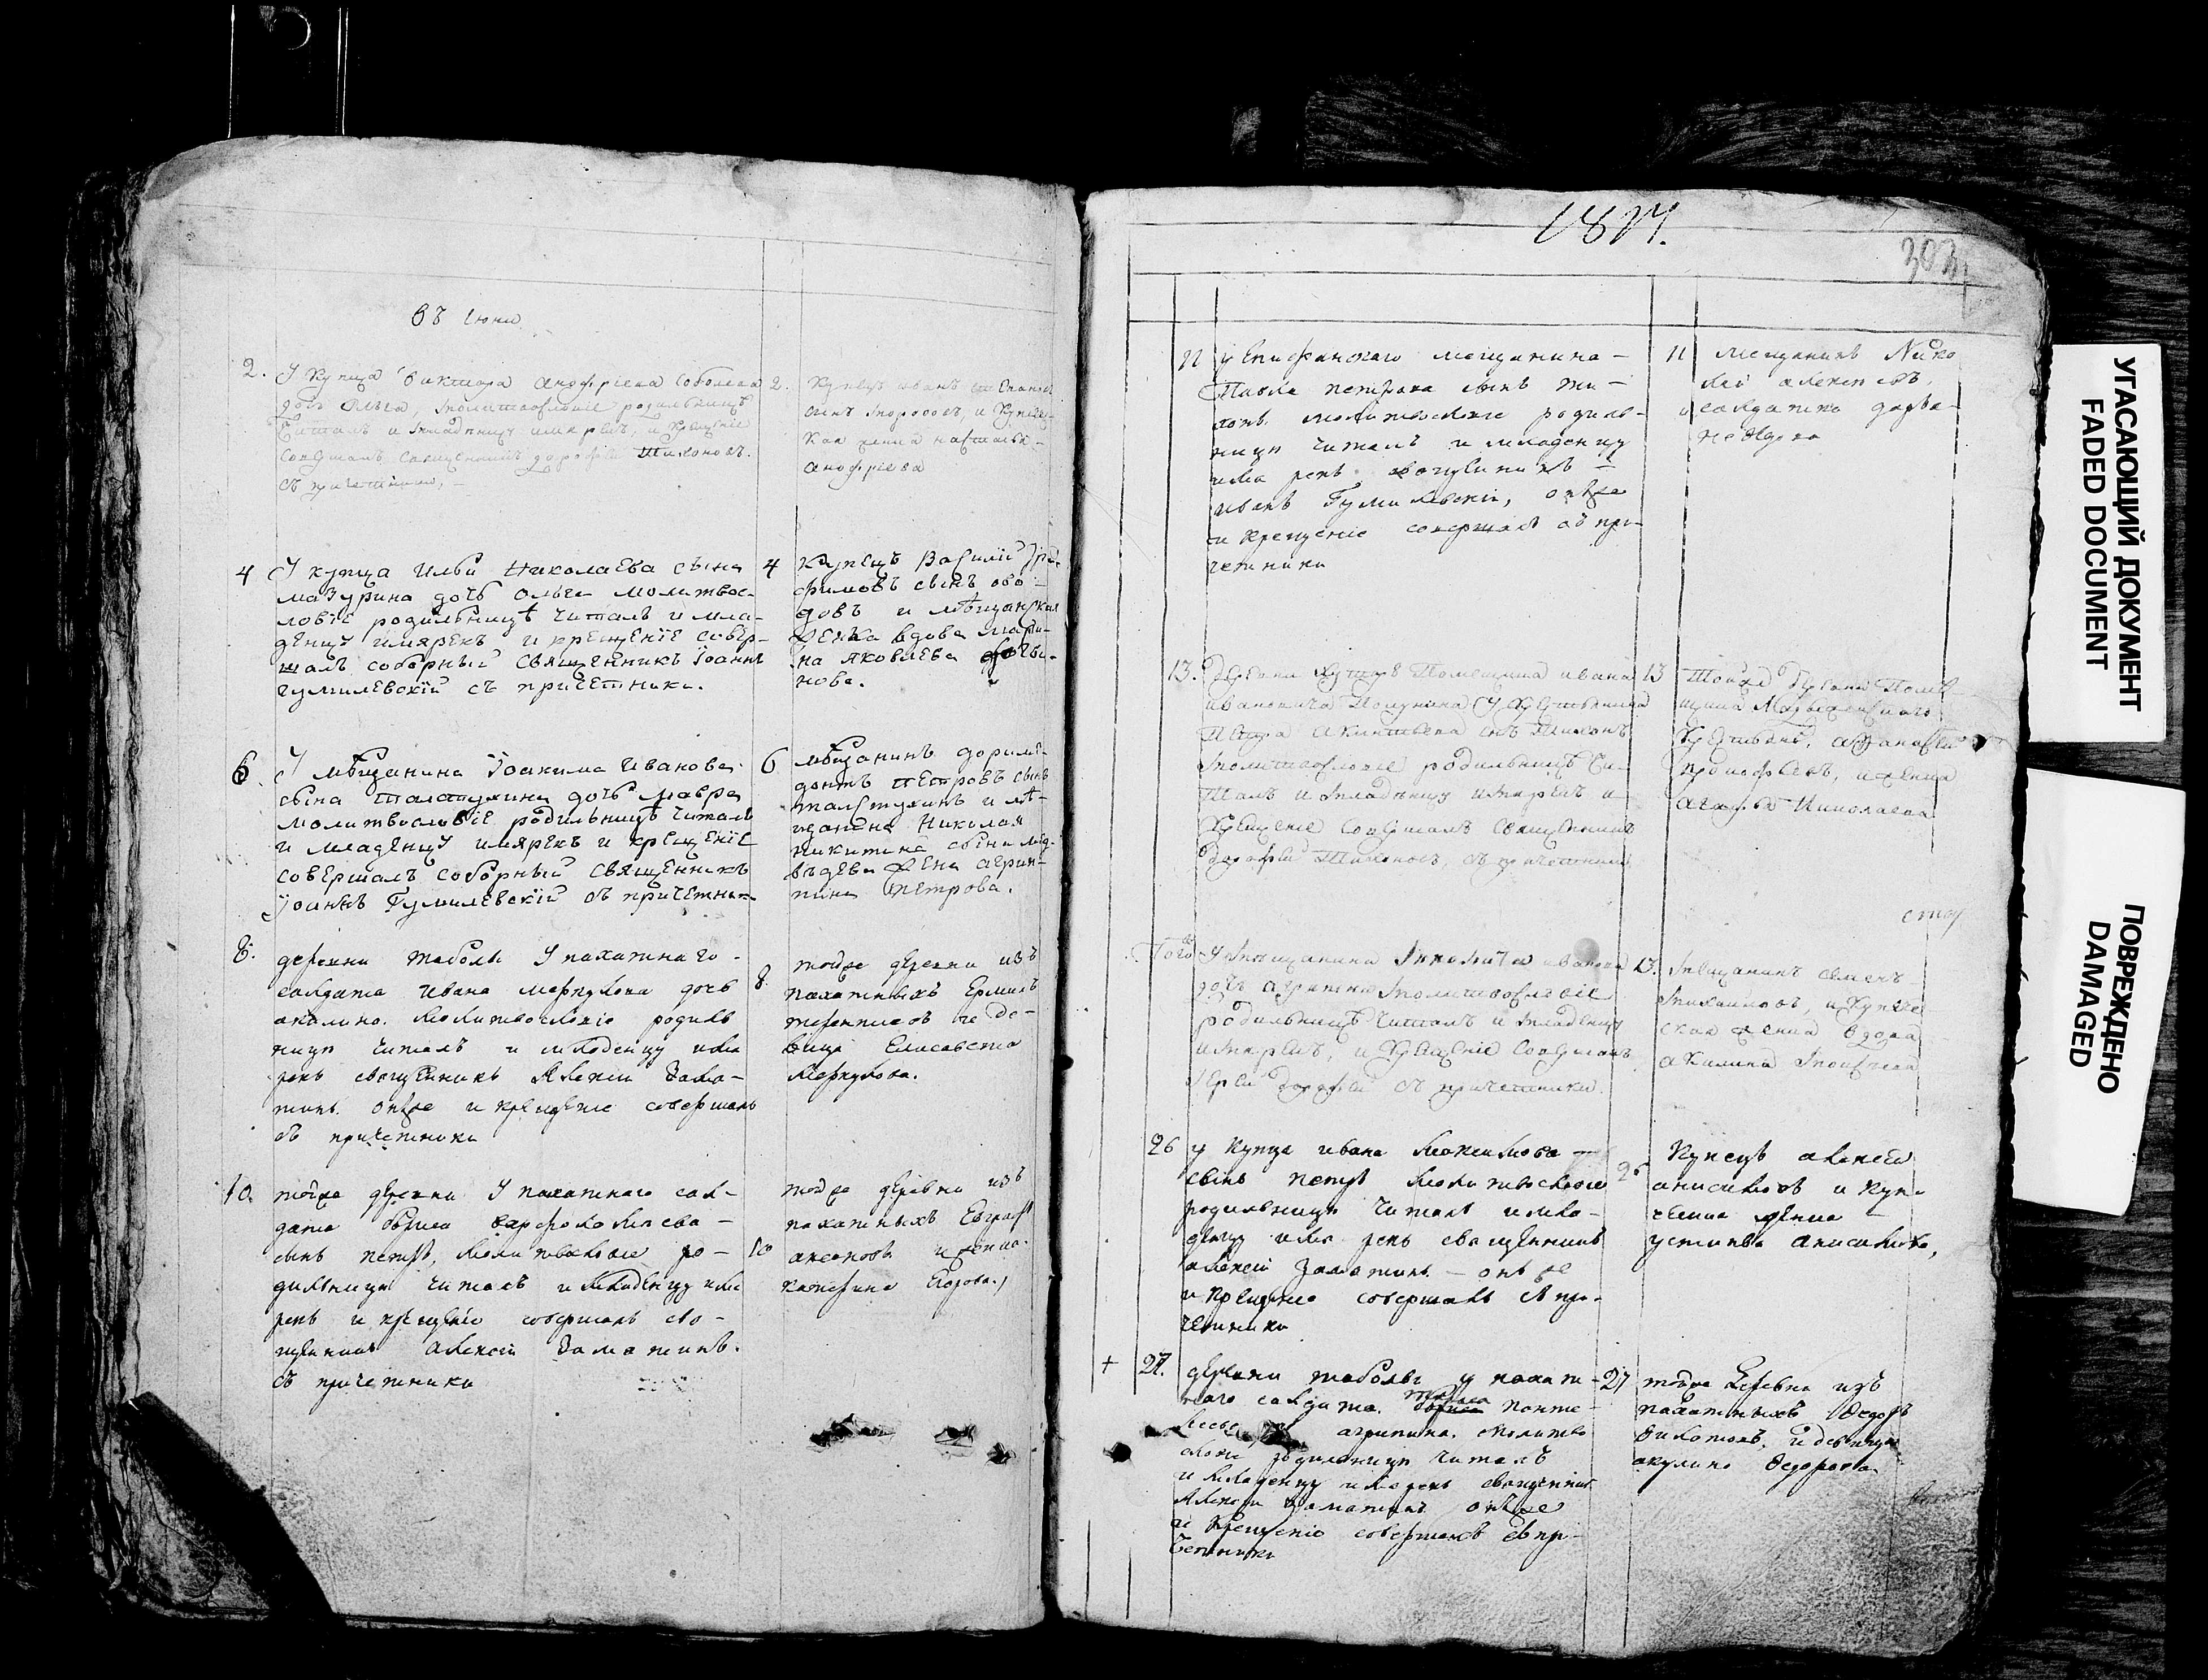 въ июни
2. У купца Виктора Анофриева Соболева
дочь Ольга, молитвословие родильнице
читалъ и младенцу имярекъ, и крещение
совершалъ священникъ Дорофей Тихоновъ.
съ причетники,
2. купецъ иванъ
сынъ и купече-
кая жена настасья
анофриева
4 У купца Ильи Николаева сына
мазурина дочь ольга молитвос-
ловїе родильницѣ читалъ и мла-
денцу имярекъ и крещенїе совер-
шалъ соборный священникъ Iоаннъ
гумилевскїй съ причетники.
4 купецъ Василiй Тро-
фимовъ сынъ
довъ и мѣщанская
женка вдова
на яковлева
нова.
6. У мѣщанина Iоакима Иванова
сына талстухина дочь мавра
молитвословїе родильницѣ читалъ
и младенцу имярекъ и крещенїе
совершалъ соборный священникъ
Iоаннъ Гумилевскїй съ причетники
6 мѣщанинъ дориме-
донтъ петровъ сынъ
талстухинъ и мѣ-
щанина Николая
никитина сына мед-
вѣдева жена агрип-
пина петрова.
8. деревни таболы У пахатнаго
салдата Ивана меркулова дочь
акилина. молитвословiе родиль
ницы читалъ и младенцу имя
рекъ священникъ Алексiй Зама-
тинъ. онъже и крещенiе совершалъ
съ причетники
8. тойже деревни изъ
пахатныхъ Ермилъ
терентиевъ и де-
вица Елисавета
меркулова.
10. тойже деревни У пахатнаго сал-
дата бориса варфоломиева
сынъ петръ, молитвословiе ро-
дильницы читалъ и младенцу имя
рекъ и крещенiе совершалъ свя-
щенникъ Алексiй Заматинъ.
съ причетники
10 тойже деревни изъ
пахатныхъ Евграфъ
аксеновъ и жена
катерина Егорова.
1814.
303
11 у Епифанскаго мещанина
Павла петрова сынъ ти-
хонъ молитвословiе родиль-
ницы читалъ и младенцу
имя рекъ священникъ
иванъ Гумилевскiй, онъже
и крещенiе совершалъ съ при-
четники
11 мещанинъ Нико
лай алексеевъ,
и салдатка дарья
Федорова
13. Деревни помещика ивана
ивановича У крестьянина
Петра акинтиева сынъ Тихонъ
молитвословие родильнице чи-
талъ и младенцу имярекъ и
крещение совершалъ священникъ
Дорофей Тихоновъ, съ причетники
13 Тойже деревни поме-
щика
крестьянъ, афанасий
прокофьевъ, и жена
агафья Николаева
Того У мещанина иванова
дочь агрипина молитвословие
родильнице читалъ и младенцу
имярекъ, и крещение совершалъ
иерей Дорофей съ причетники.
13. мещанинъ семенъ
михаиловъ, и купече
ская жена вдова
акилина моисеева
26 у купца ивана максимова
сынъ петръ молитвословiе
родильницы читалъ и мла-
денцу имя рекъ священникъ
алексей Заматинъ — онъже
и крещенiе совершалъ съ при-
четники
26 Купецъ алексей
анисимовъ и куп-
чешка жена
устинья анисимова,
+ 27. деревни таболы у пахат-
наго салдата панте-
агрипина. молитво
словiе родильницы читалъ
и младенцу имя рекъ священникъ
Алексей Заматинъ онъже
и крещенiе совершалъ съ при-
четники
27 тойже деревни изъ
пахатныхъ Федоръ
Филатовъ. и девица
акулина Федорова
УГАСАЮЩИЙ ДОКУМЕНТ
FADED DOCUMENT
ПОВРЕЖДЕНО
DAMAGED